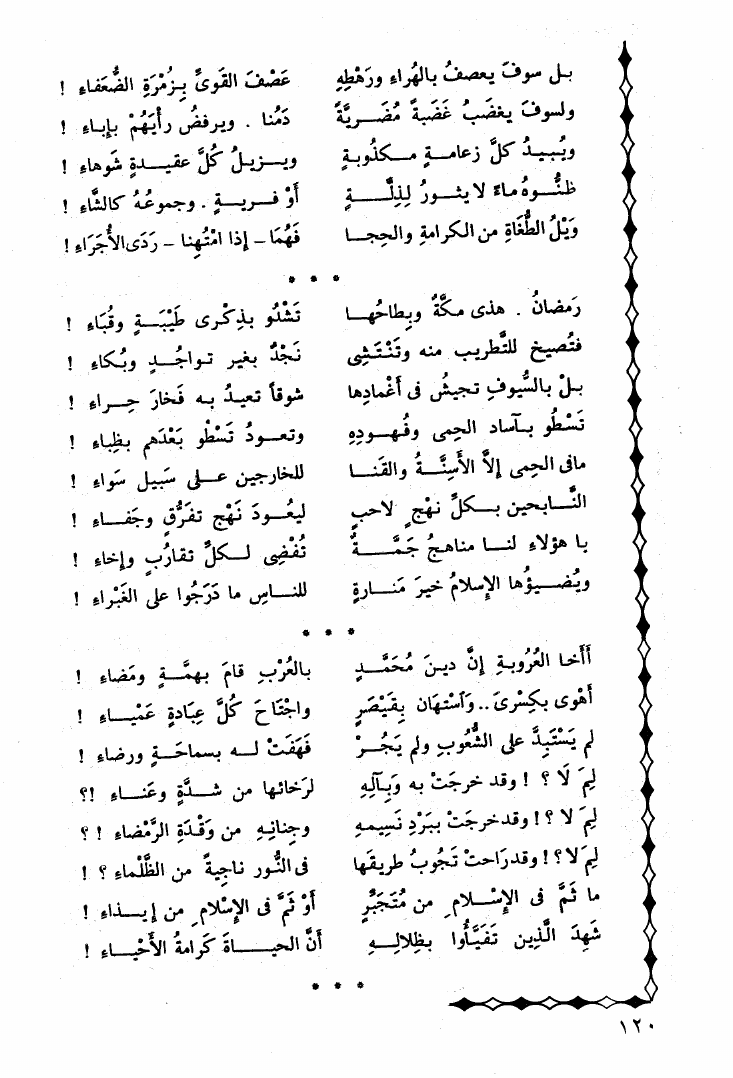 بل سوفَ يعصفُ بالهُراءِ ورَهْطِهِ عَصْفَ القَوىِّ بِزُمْرَةِ الضُّعَفاءِ !
ولسوفَ يغضَبُ غَضْبةً مُضَريَّةً دَمُنا . ويرفضُ رأيَهُمْ بإباءِ !
ويُبيدُ كلَّ زعامةٍ مكذُوبةٍ ويزيلُ كُلَّ عقيدةٍ شَوهاءِ !
ظنُّوهُ ماءً لا يثورُ لِذِلَّةٍ أوْ فريةٍ . وجموعُهُ كالشَّاءِ !
وَيْلُ الطُّغَاةِ من الكرامةِ والحِجا فَهُمَا – إذا امْتُهِنا – رَدَى الأُجَرَاءِ !
* * *
رَمضانُ . هذى مكَّةٌ وبِطاحُها تَشْدُو بذِكْرى طَيْبَةٍ وقُبَاءِ !
فتُصيخ للتَّطريب منه وتَنْتَشِى نَجْدٌ بغير تواجُدٍ وبُكاءِ !
بلْ بالسُّيوفِ تجيشُ فى أغْمادِها شوقاً تعيدُ به فَخارَ حِراءِ !
تَسْطُو بآساد الحِمى وفُهودِهِ وتعودُ تَسْطُو بَعْدَهم بظِباءِ !
مافى الحِمى إلاَّ الأسِنَّةُ والقَنا للخارجين على سَبيل سَواءِ !
النَّابحين بكلِّ نهْجٍ لاحبٍ ليعُودَ نَهْج تفَرُّقٍ وجَفاءِ !
يا هؤلاءِ لنا مناهجُ جَمَّةٌ تُفْضِى لكلِّ تقارُبٍ وإخاءِ !
ويُضيؤُها الإسلامُ خيرَ مَنارةٍ للناسِ ما دَرَجُوا على الغَبْراءِ !
* * *
أأخا العُرُوبةِ إنَّ دينَ مُحَمَّدٍ بالعُرْبِ قامَ بهمَّةٍ ومَضاءِ !
أهْوى بكِسْرىَ .. وَاَسْتهَان بِقَيْصَرٍ واجْتَاحَ كُلَّ عِبَادةٍ عَمْياءِ !
لم يَسْتَبِدَّ على الشُّعُوبِ ولم يَجُرْ فَهَفَتْ له بسماحَةٍ ورضاءِ !
لِمَ لَا ؟ ! وقد خرجَتْ به وَبِآلِهِ لرَخائها من شدَّةٍ وعَناءِ !؟
لِمَ لا ؟ ! وقد خرجَتْ بِبَرْدِ نَسِيمهِ وجِنانِهِ من وَقْدَةِ الرَّمْضاءِ ! ؟
لِمَ لا ؟ ! وقد رَاحتْ تَجُوبُ طريقَها فى النُّور ناجيةً من الظَّلْماءِ ؟ !
ما ثَمَّ فى الإسْلامِ من مُتَجَبِّرٍ أوْ ثَمَّ فى الإسْلامِ من إيذاءِ !
شَهِدَ الَّذِين تَفَيَّأُوا بظِلالِهِ أنَّ الحياةَ كَرامةُ الأحْياءِ !
* * *
١٢٠